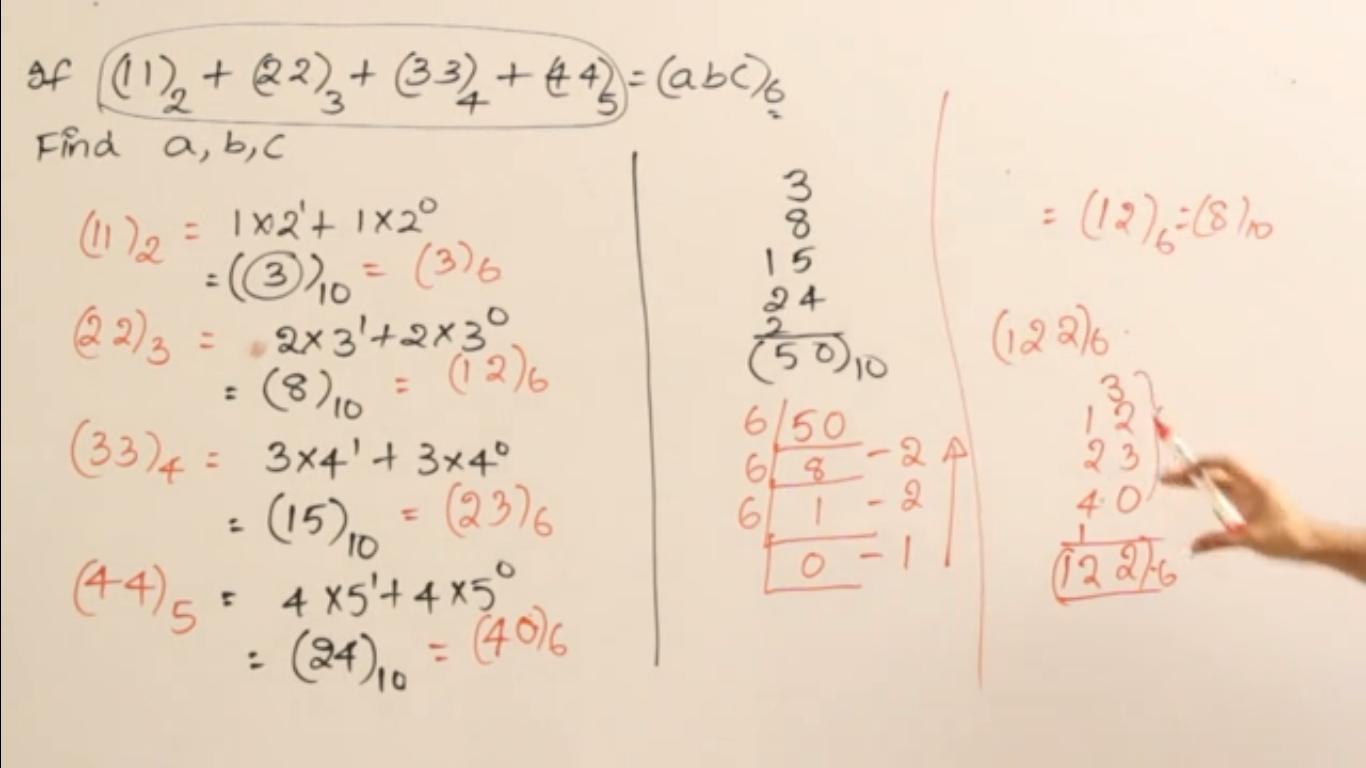 If (11)₂ + (22)₃ + (33)₄ + (44)₅ = (abc)₆
Find a, b, c
(11)₂ = 1×2¹ + 1×2⁰
= (3)₁₀ = (3)₆
(22)₃ = 2×3¹ + 2×3⁰
= (8)₁₀ = (12)₆
(33)₄ = 3×4¹ + 3×4⁰
= (15)₁₀ = (23)₆
(44)₅ = 4×5¹ + 4×5⁰
= (24)₁₀ = (40)₆
3
8
15
24
2
(50)₁₀
6 50
6 8 - 2
6 1 - 2
0 - 1
= (12)₆ = (8)₁₀
(122)₆
3
12
23
40
1
(122)₆